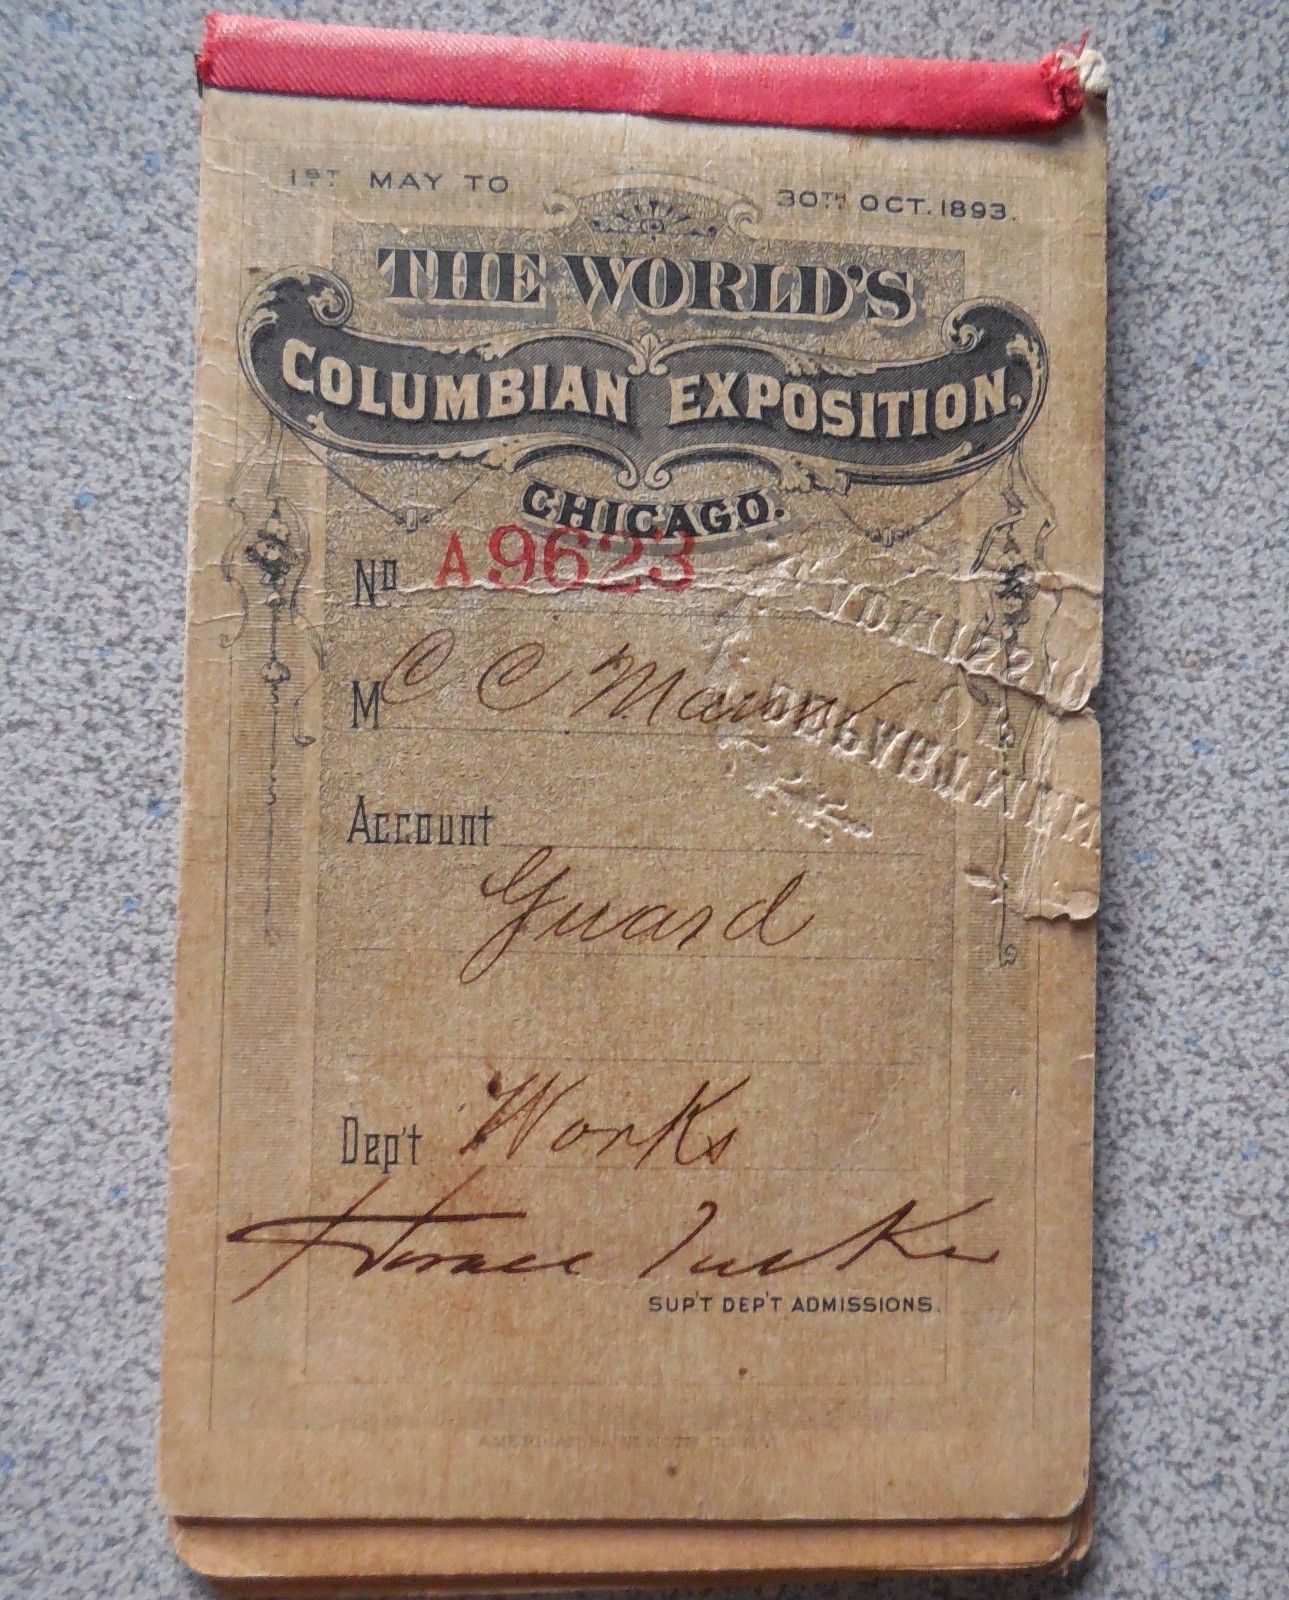 1ST MAY TO 30TH OCT. 1893.
THE WORLD'S
COLUMBIAN EXPOSITION,
CHICAGO.
No A9623
M C C
Account
Guard
Dep't Works
Horace Tucker
SUP'T DEP'T ADMISSIONS.